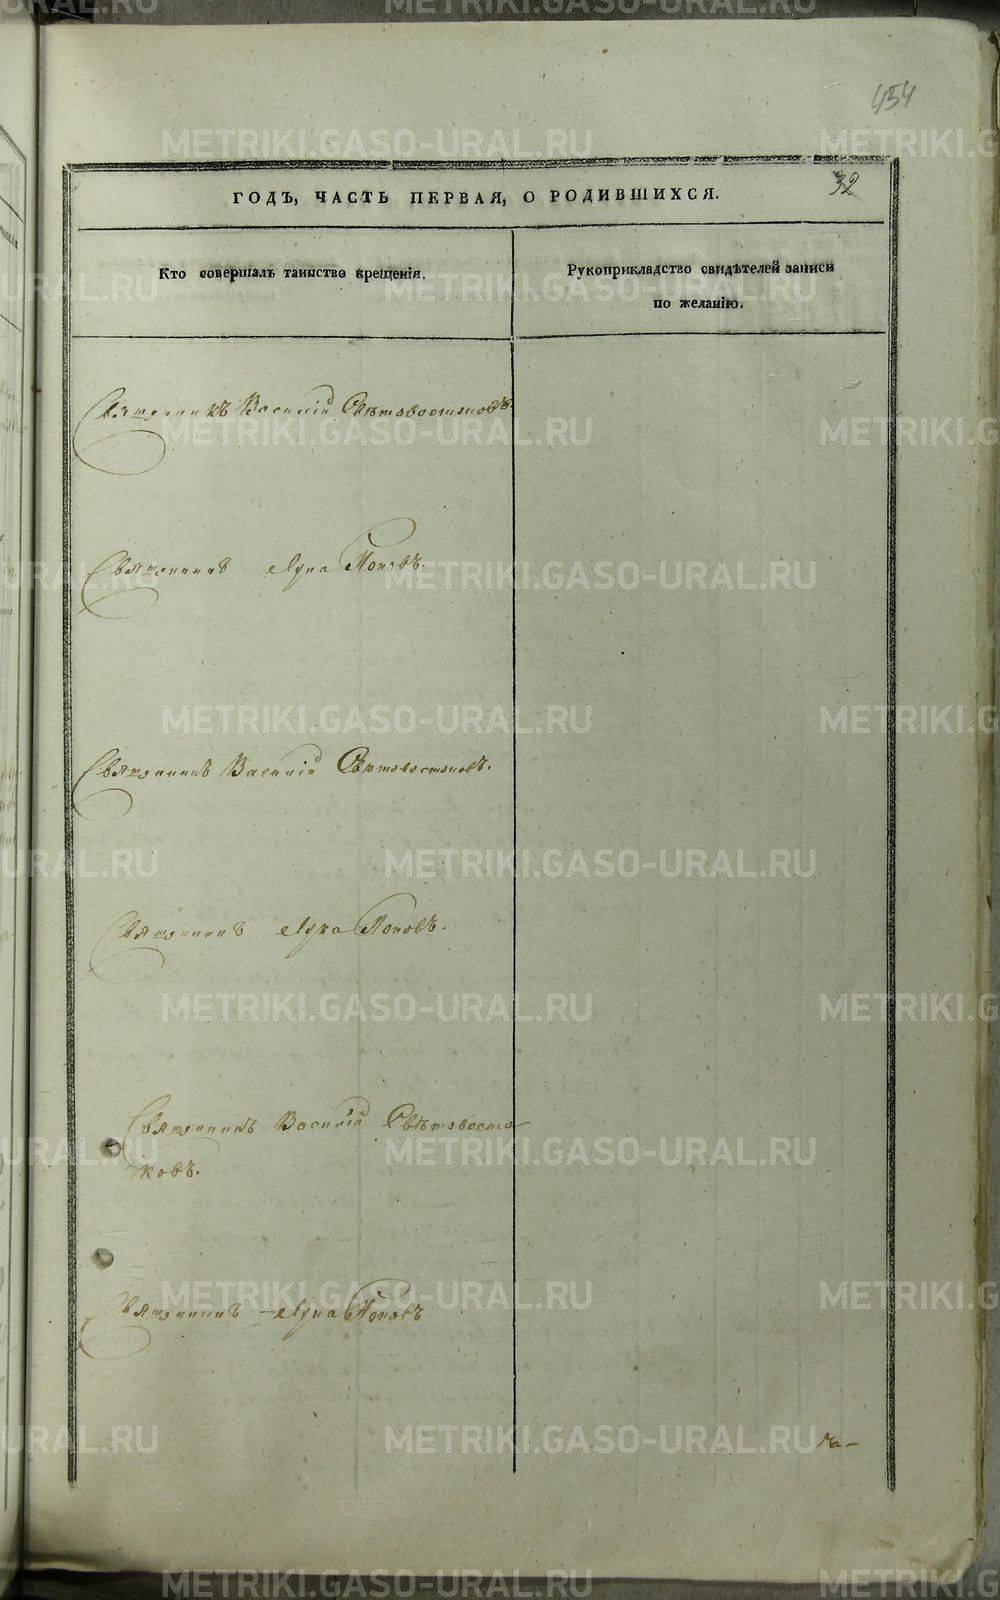 454
32
ГОДЪ, ЧАСТЬ ПЕРВАЯ, О РОДИВШИХСЯ.
Кто совершалъ таинство крещенія.
Рукоприкладство свидѣтелей записи
по желанію.
Священникъ Василій Свѣтовостоковъ.
Священникъ Лука Поповъ.
Священникъ Василій Свѣтовостоковъ.
Священникъ Лука Поповъ.
Священникъ Василій Свѣтовосто-
ковъ.
Священникъ Лука Поповъ
METRIKI.GASO-URAL.RU